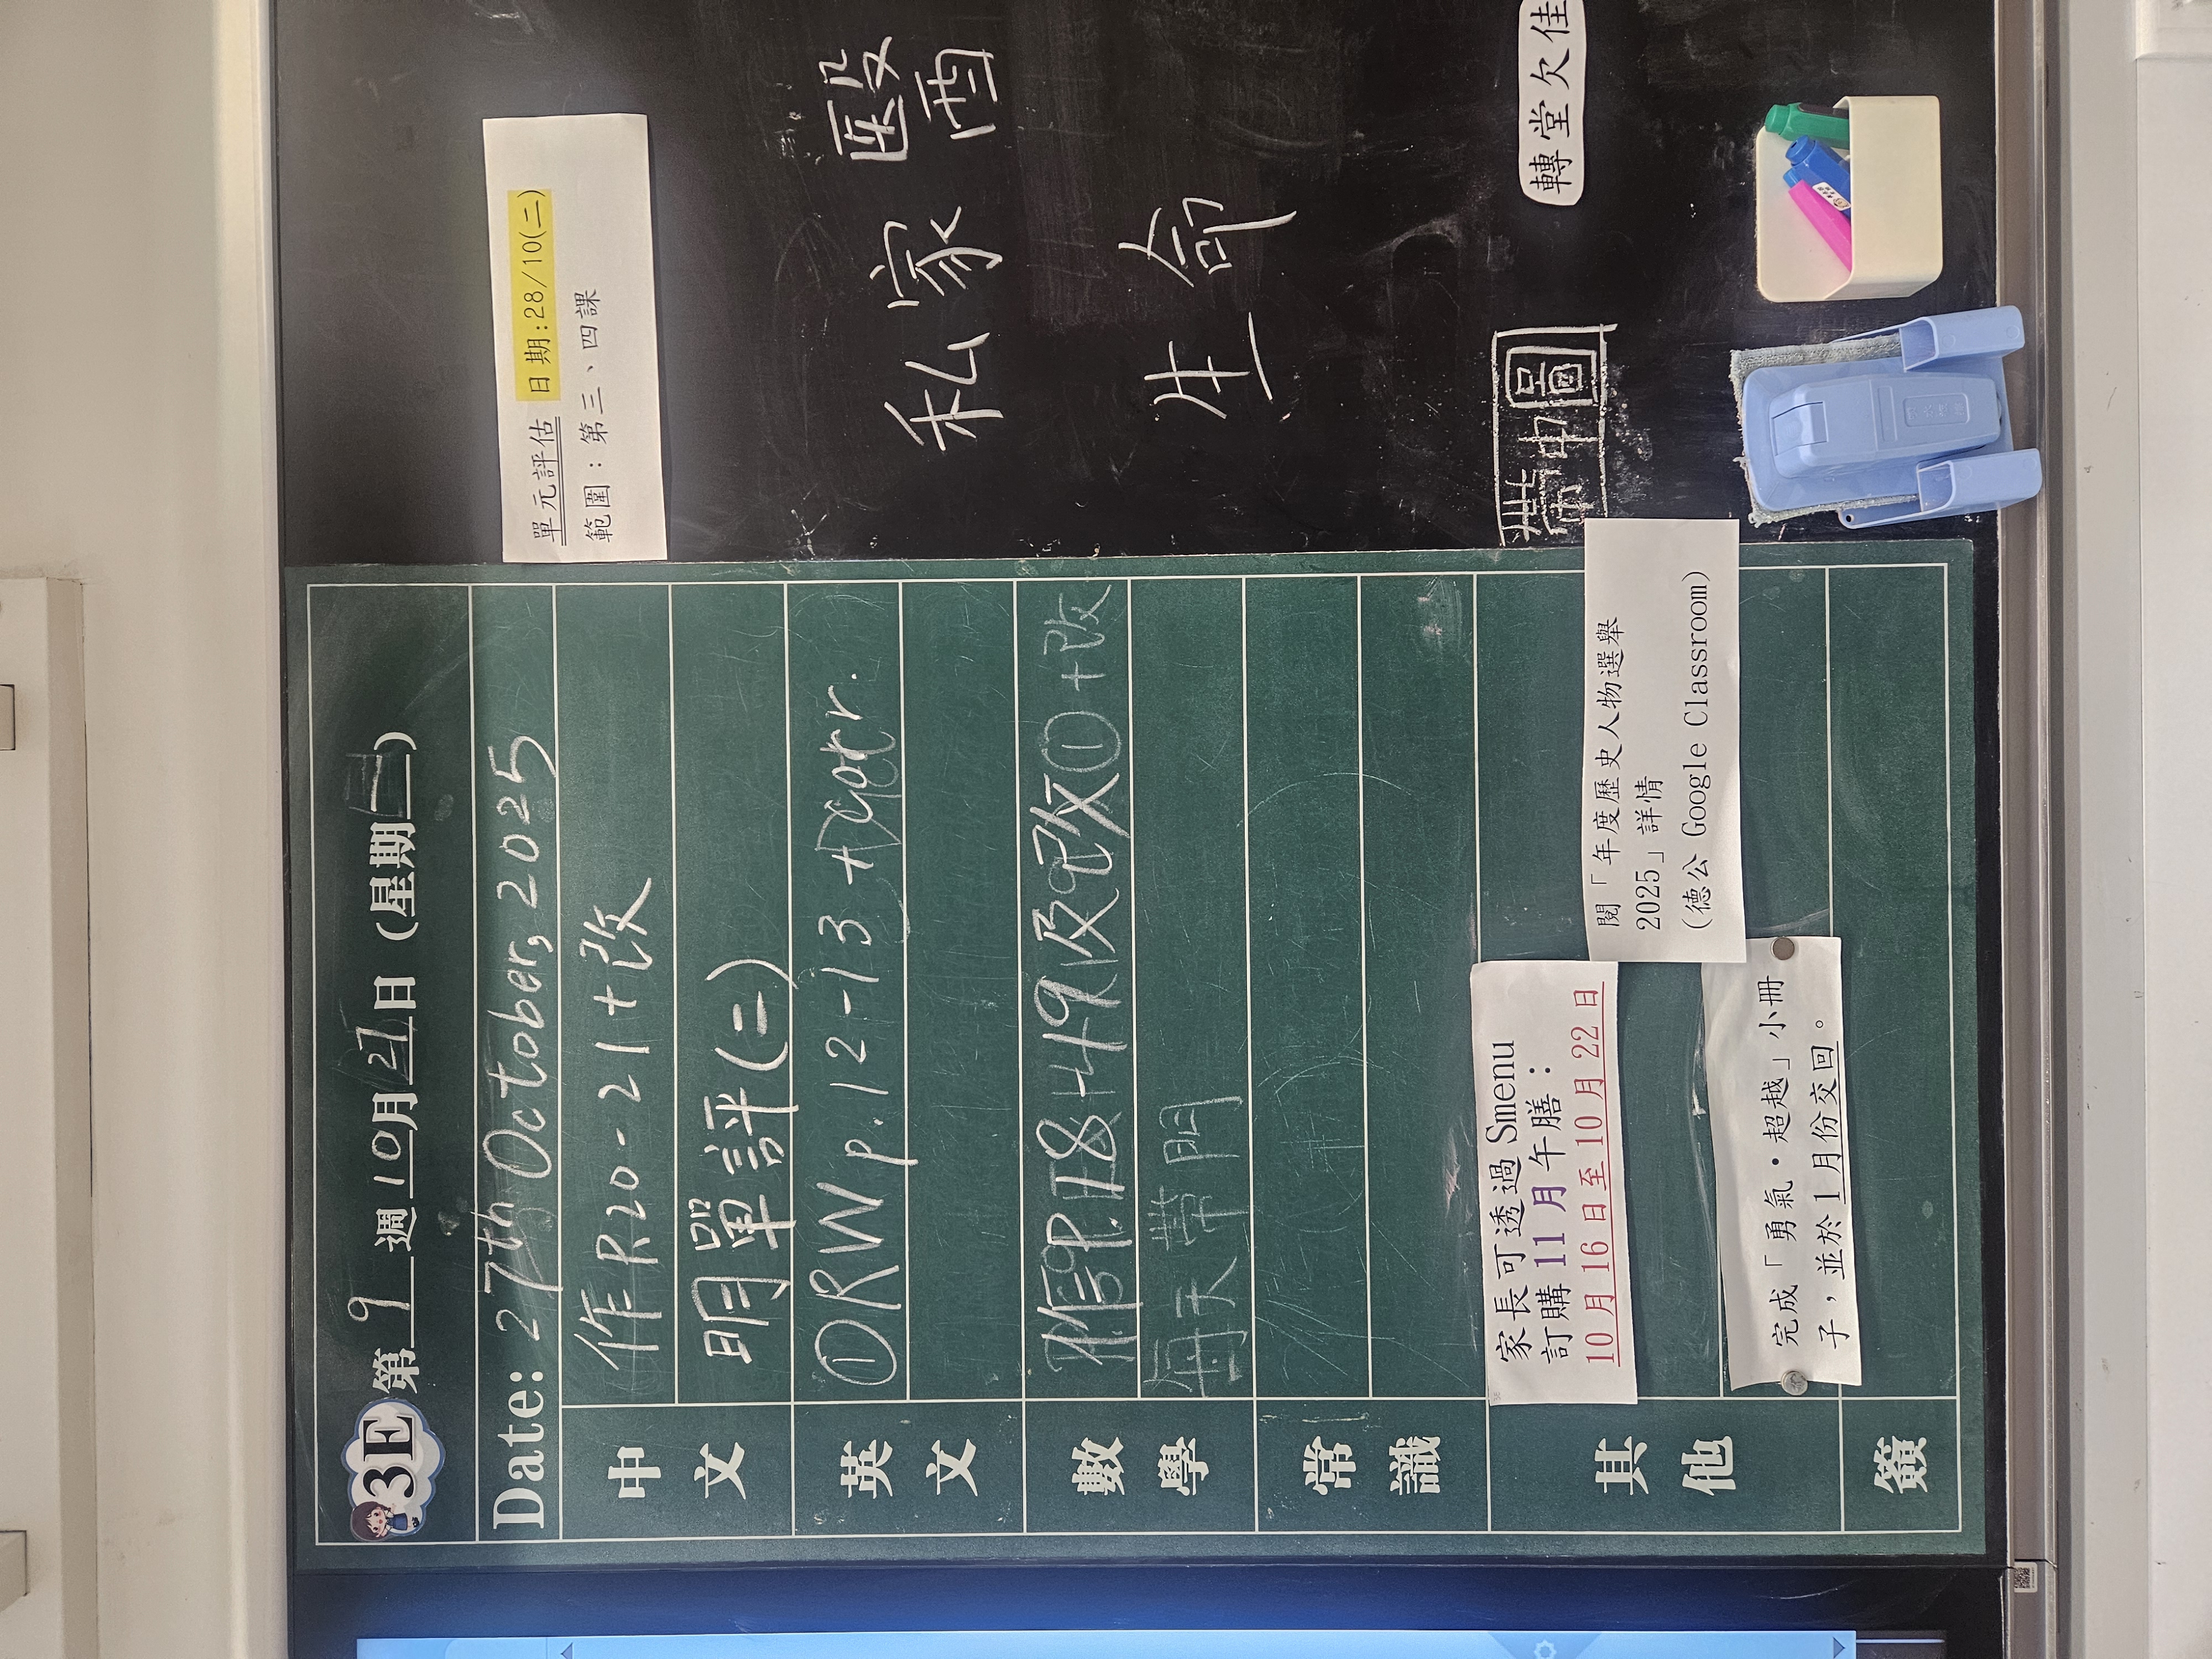 3E 第 9 週 10月27日(星期一)
Date: 27th October, 2025
中文
作 P.20-21+改
明單評(二)
英文
① RW p.12-13 + corr.
數學
作P.48-49及改①+改
每天帶附
常識
其他
家長可透過 Smenu
訂購 11 月午膳:
10 月 16 日至 10 月 22 日
閱「年度歷史人物選舉
2025」詳情
(德公 Google Classroom)
完成「勇氣・超越」小冊
子,並於 1 月份交回。
簽
單元評估 日期:28/10(二)
範圍:第三、四課
私家醫
生命
帶中圖
轉堂欠佳